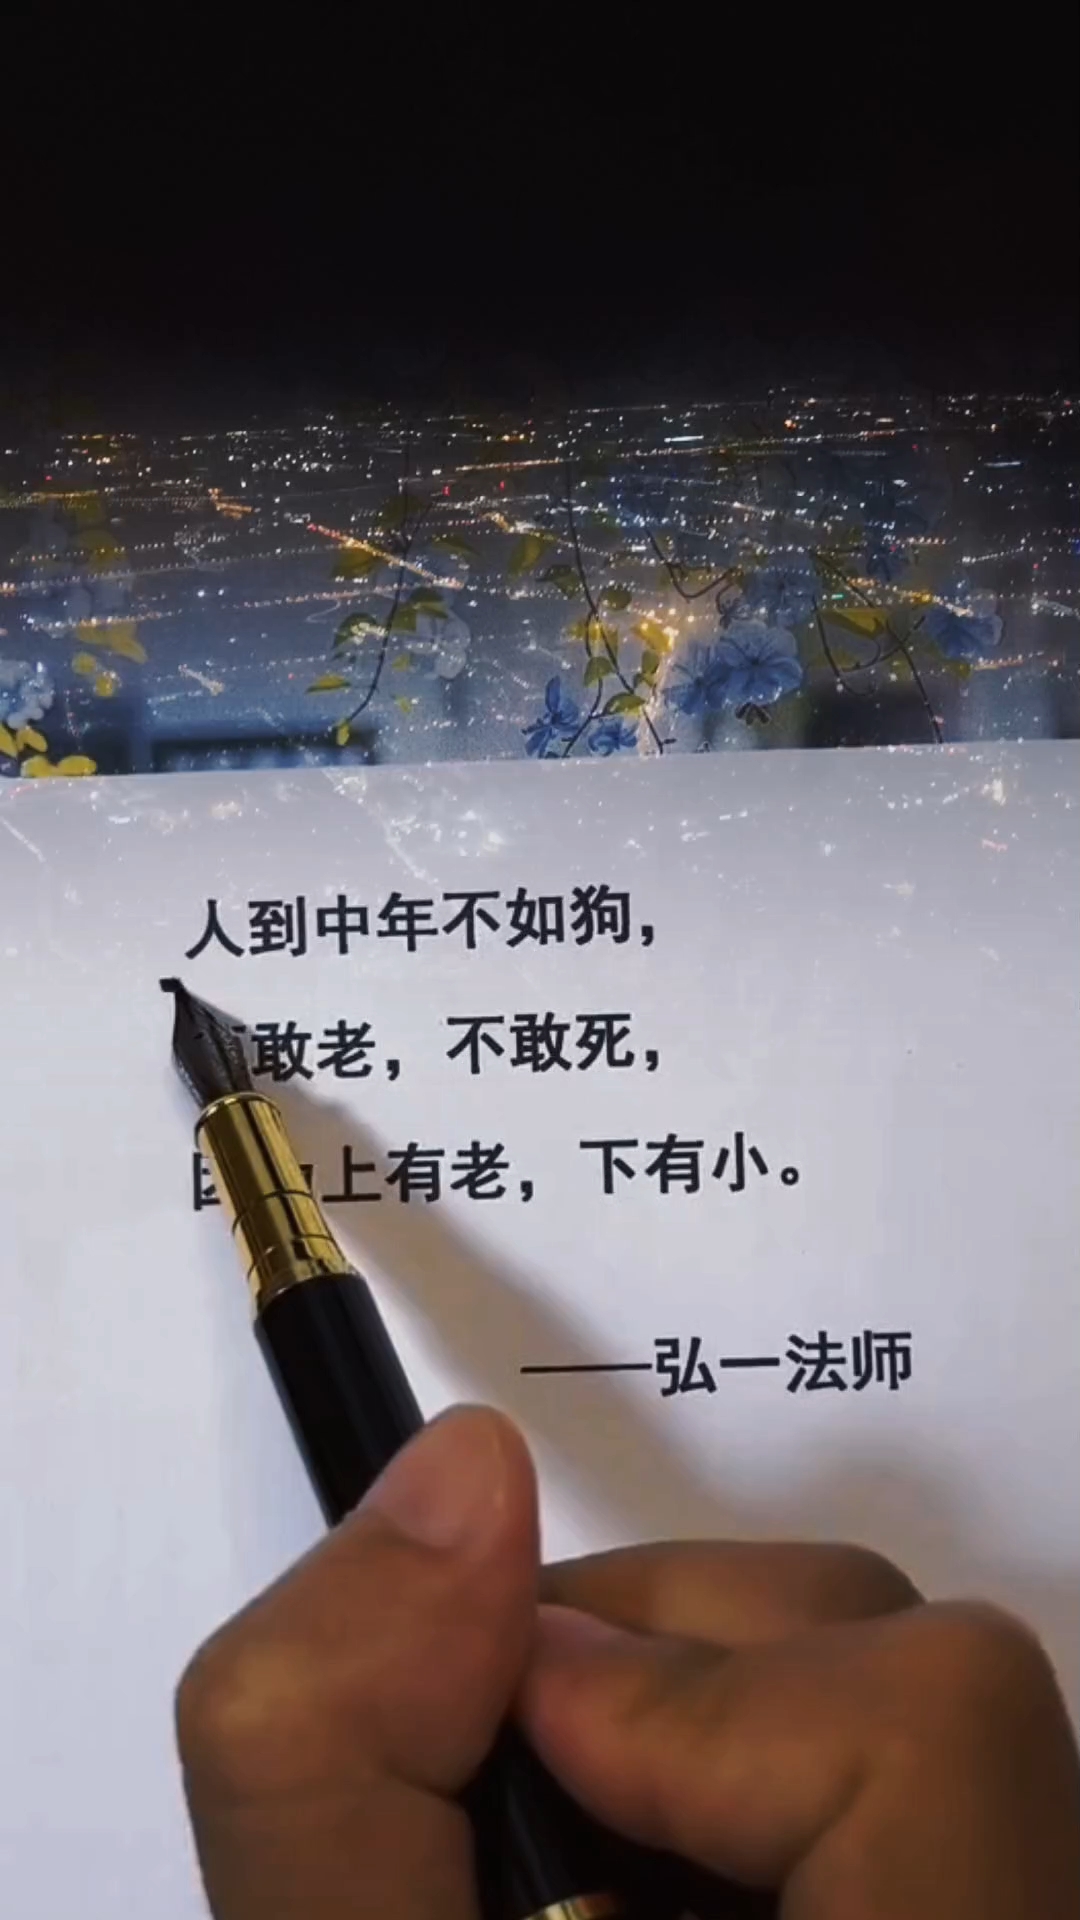 人到中年不如狗，
敢老，不敢死，
上有老，下有小。
——弘一法师